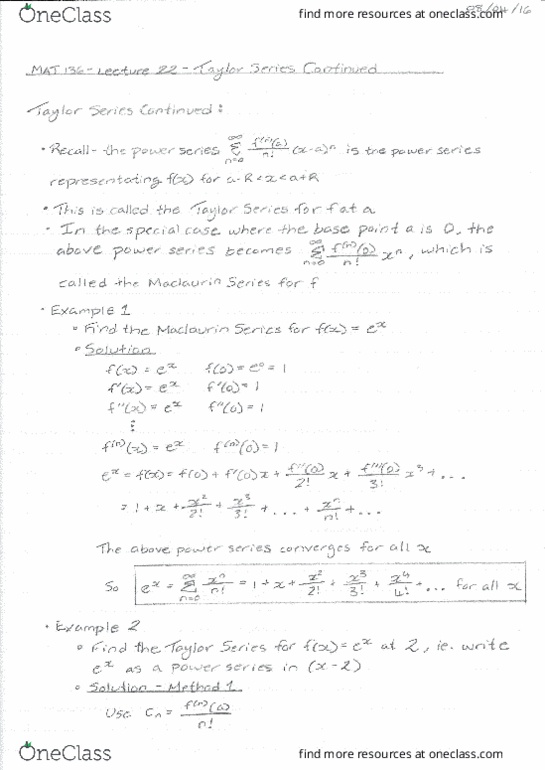 OneClass
find more resources at oneclass.com
03/04/16
MAT 136 - Lecture 22 - Taylor Series Continued
Taylor Series Continued:
• Recall - the power series ∞Σn=0 f⁽ⁿ⁾(a)/n! (x-a)ⁿ is the power series
representating f(x) for a-R<x<a+R
• This is called the Taylor Series for f at a
• In the special case where the base point a is 0, the
above power series becomes ∞Σn=0 f⁽ⁿ⁾(0)/n! xⁿ, which is
called the Maclaurin Series for f
• Example 1
• Find the Maclaurin Series for f(x) = eˣ
• Solution
f(x) = eˣ f(0) = e⁰ = 1
f'(x) = eˣ f'(0) = 1
f''(x) = eˣ f''(0) = 1
⋮
f⁽ⁿ⁾(x) = eˣ f⁽ⁿ⁾(0) = 1
eˣ = f(x) = f(0) + f'(0)x + f''(0)/2! x + f'''(0)/3! x³ + ...
= 1 + x + x²/2! + x³/3! + ... + xⁿ/n! + ...
The above power series converges for all x
So eˣ = ∞Σn=0 xⁿ/n! = 1 + x + x²/2! + x³/3! + x⁴/4! + ... for all x
• Example 2
• Find the Taylor Series for f(x) = eˣ at 2, ie. write
eˣ as a power series in (x-2)
• Solution - Method 1
Use Cn = f⁽ⁿ⁾(a)/n!
OneClass
find more resources at oneclass.com